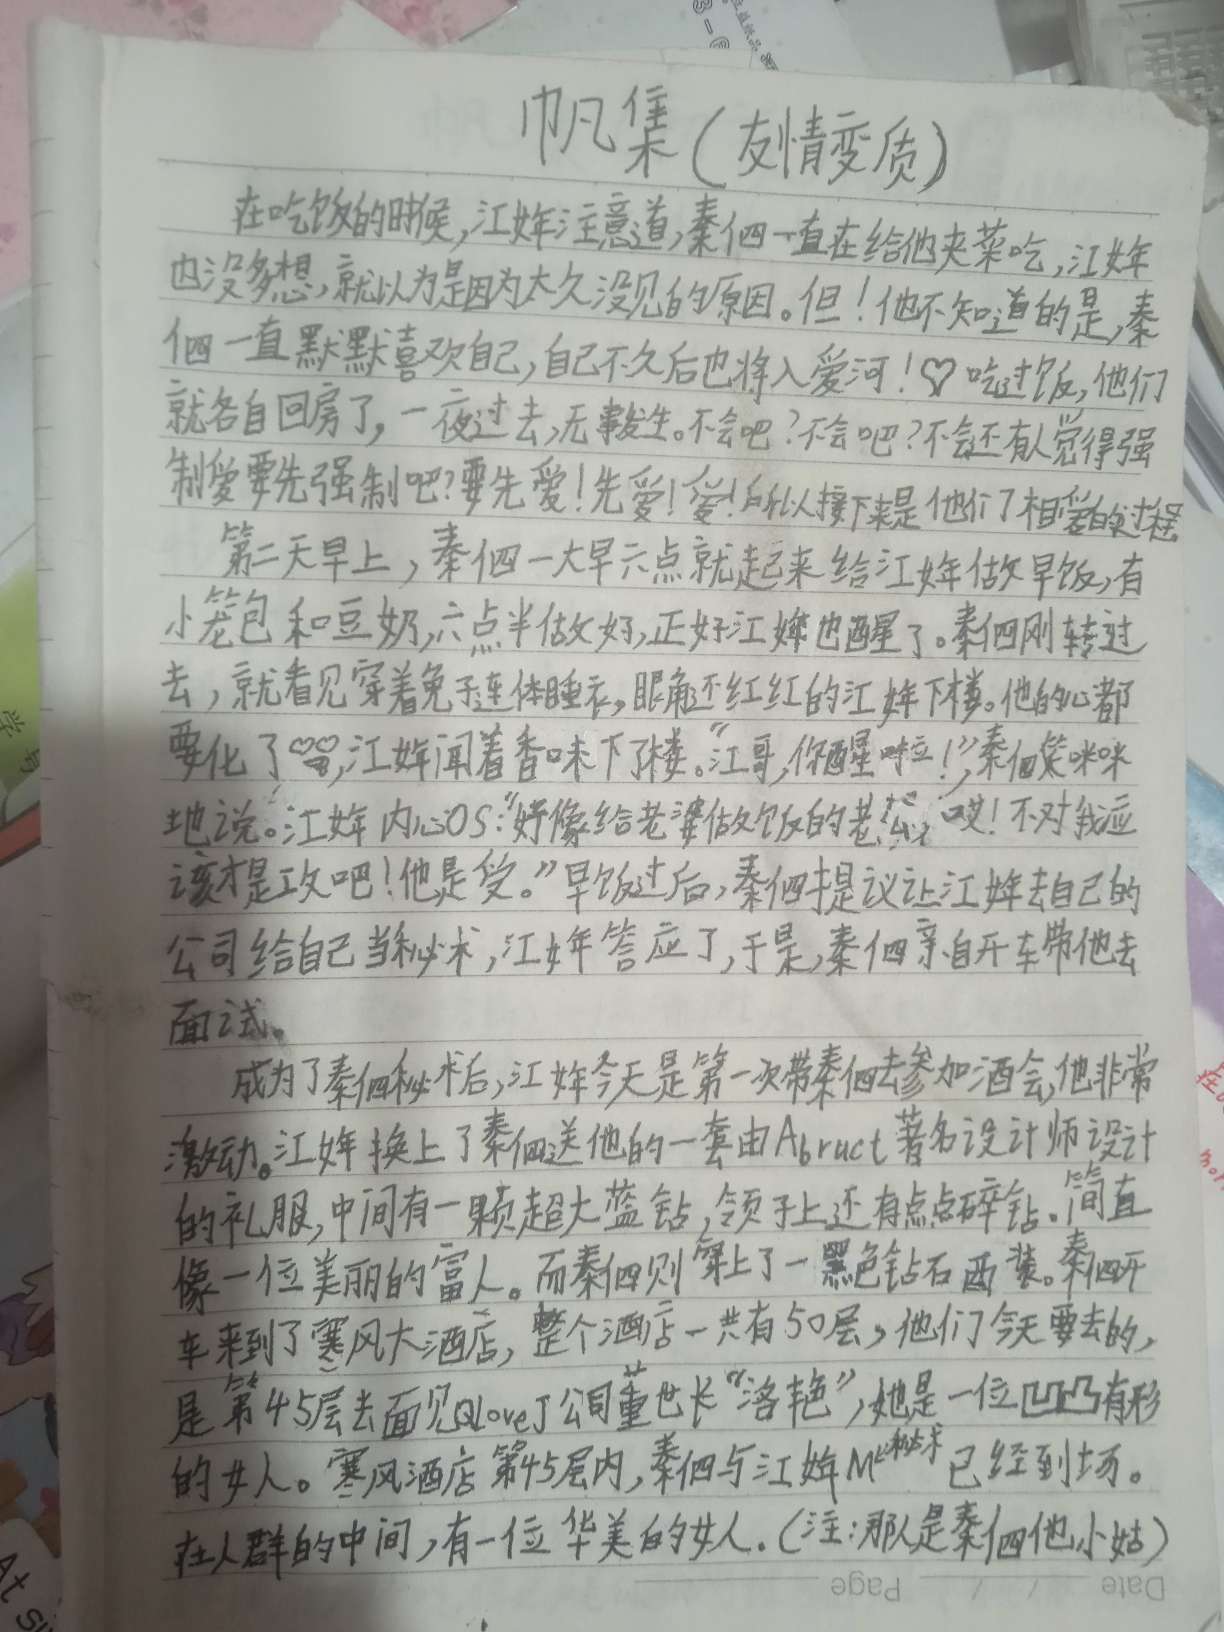 帆集(友情变质)
在吃饭的时候,江姩注意道,秦倁一直在给他夹菜吃,江姩
也没多想,就以为是因为太久没见的原因。但!他不知道的是,秦
倁一直默默喜欢自己,自己不久后也将入爱河!♡吃过饭,他们
就各自回房了,一夜过去,无事发生。不会吧?不会吧?不会还有人觉得强
制爱要先强制吧?要先爱!先爱!爱!所以接下来是他们了相爱的过程
第二天早上,秦倁一大早六点就起来给江姩做早饭,有
小笼包和豆奶,六点半做好,正好江姩也醒了。秦倁刚转过
去,就看见穿着兔子连体睡衣,眼角还红红的江姩下楼。他的心都
要化了♡♡,江姩闻着香味下了楼。“江哥,你醒啦!”,秦倁笑咪咪
地说。江姩内心OS:“好像给老婆做饭的老公,哎!不对我应
该才是攻吧!他是受。”早饭过后,秦倁提议让江姩去自己的
公司给自己当秘术,江姩答应了,于是,秦倁亲自开车带他去
面试。
成为了秦倁秘术后,江姩今天是第一次带秦倁去参加酒会,他非常
激动。江姩换上了秦倁送他的一套由Abruct著名设计师设计
的礼服,中间有一颗超大蓝钻,领子上还有点点碎钻。简直
像一位美丽的富人。而秦倁则穿上了一黑色钻石西装。秦倁开
车来到了寒风大酒店,整个酒店一共有50层,他们今天要去的,
是第45层去面见QLoveJ公司董世长“洛艳”,她是一位凹凸有形
的女人。寒风酒店第45层内,秦倁与江姩M秘术已经到场。
在人群的中间,有一位华美的女人。(注:那人是秦倁他小姑)
Date Page